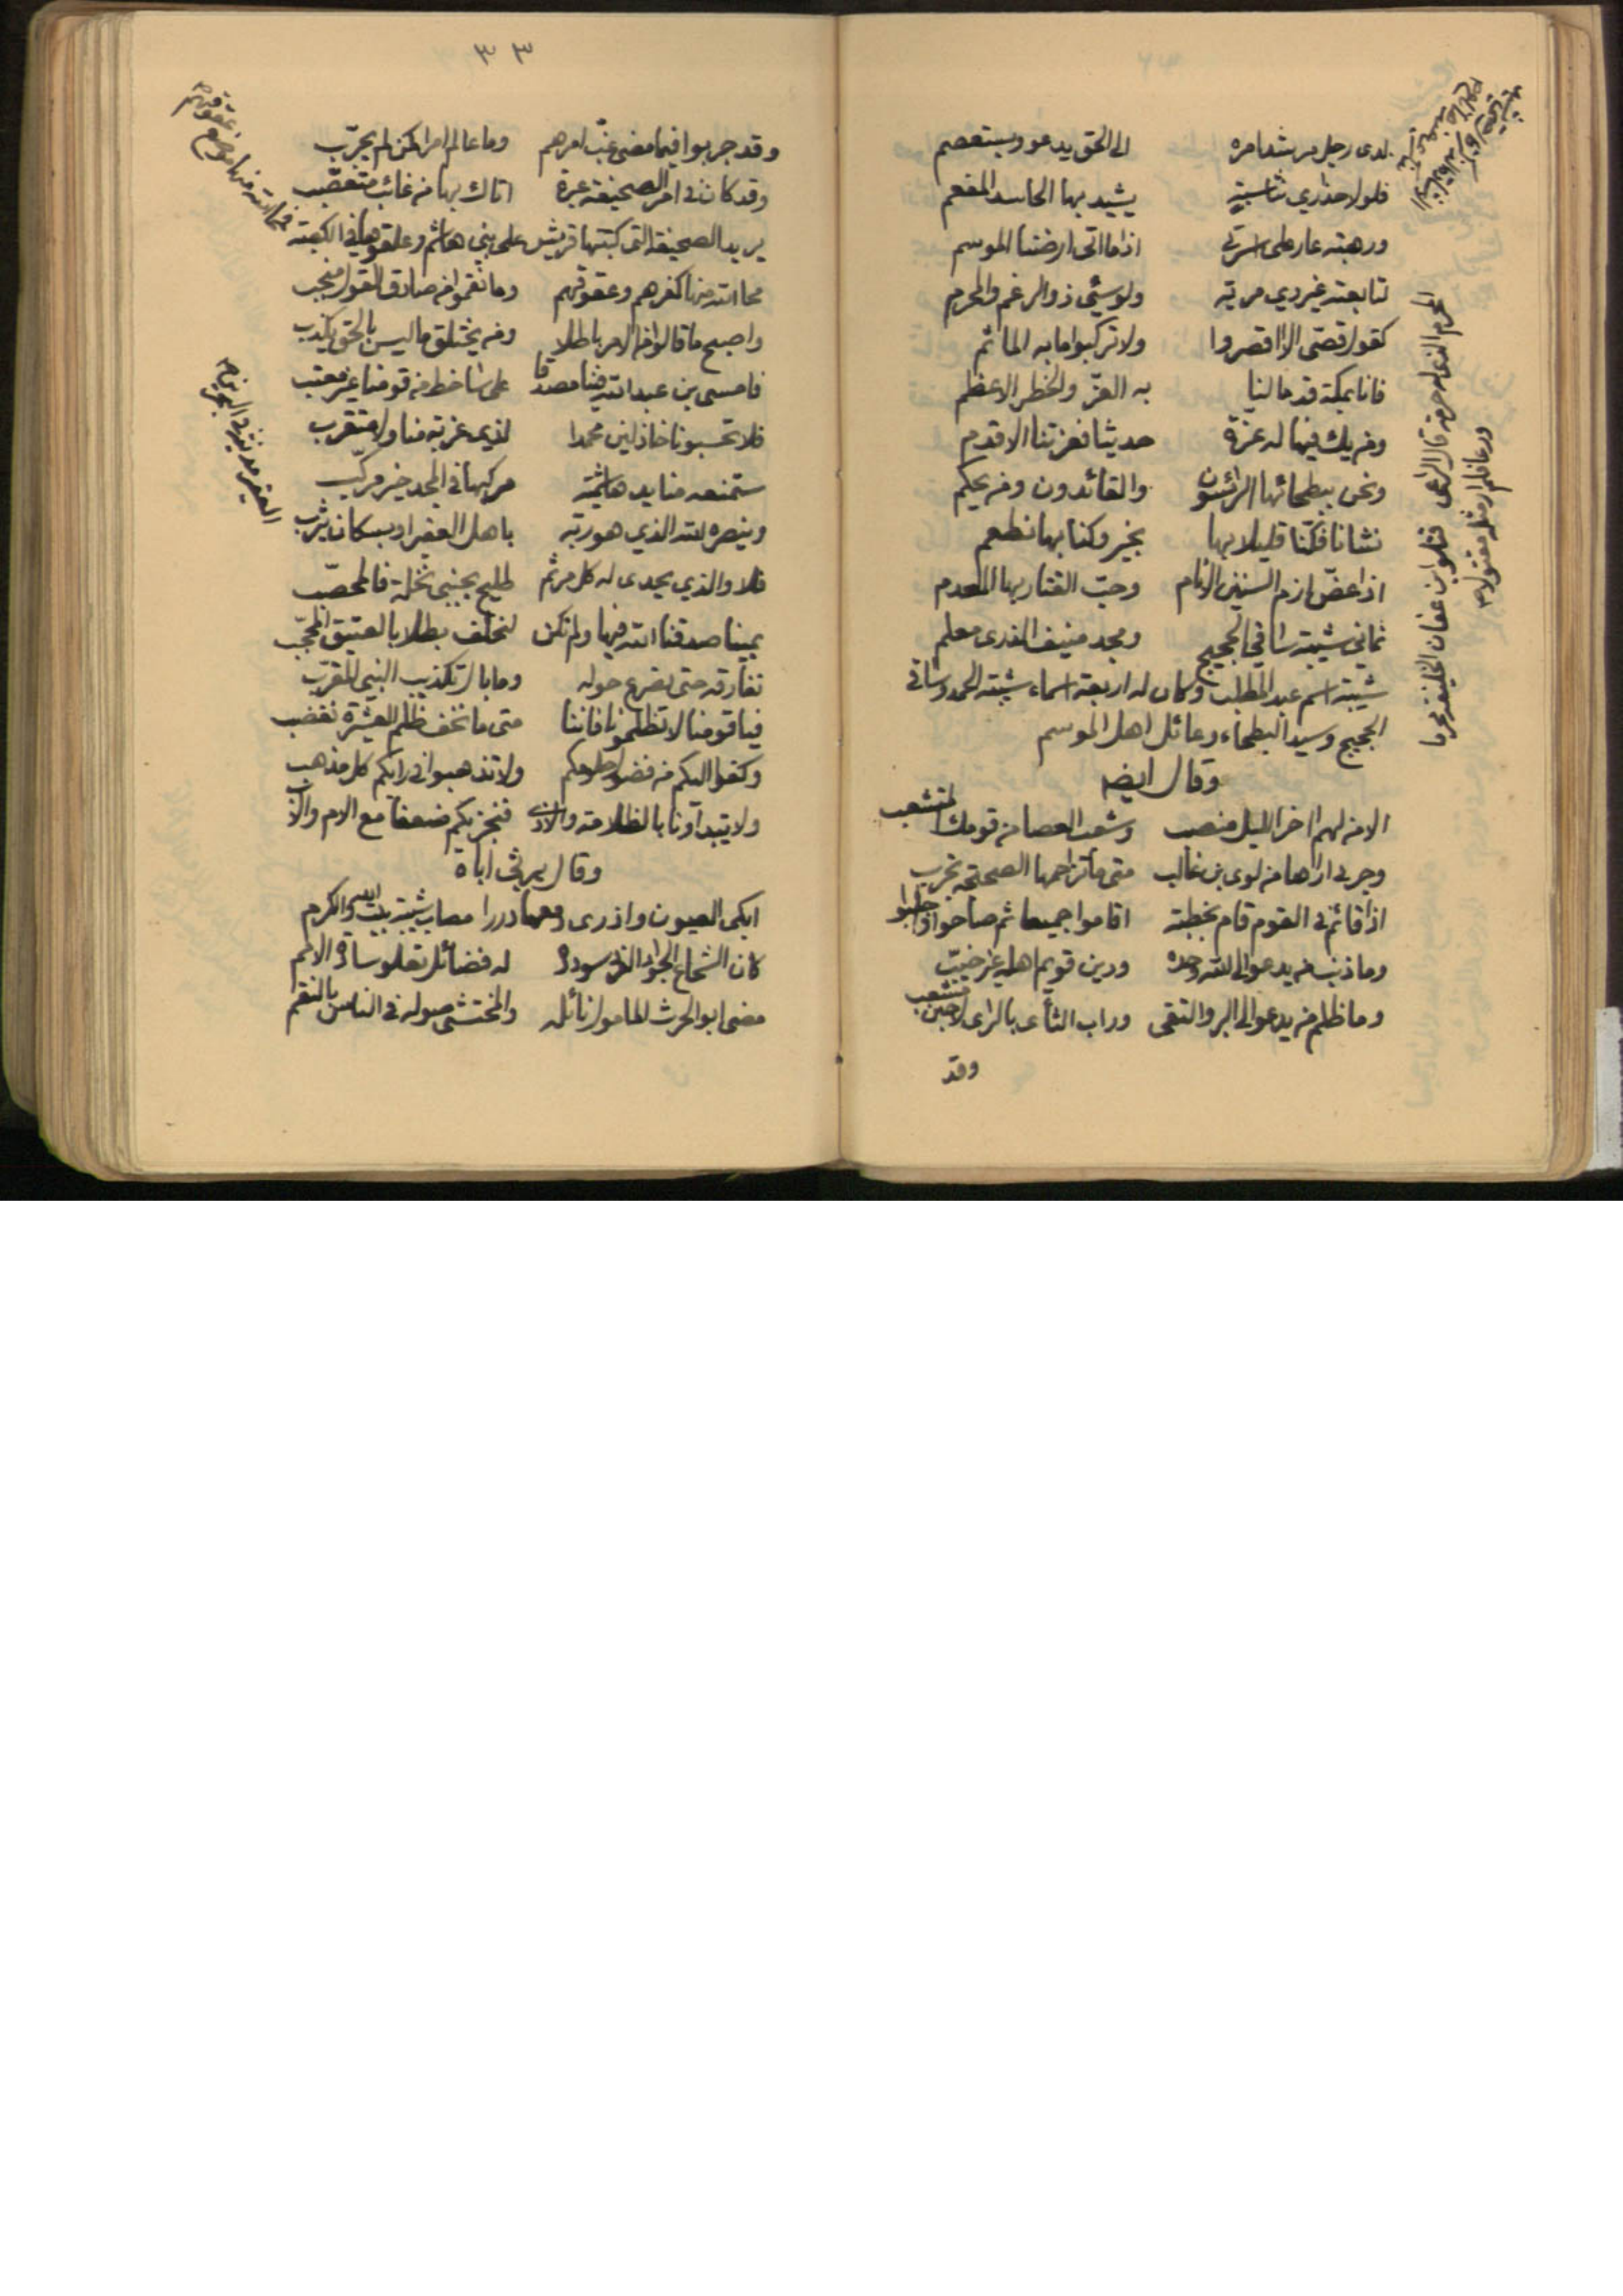 لدى رجل مرشد امره الى الحق يدعو ويستعصم
فلولا حذاري نثا سبّةٍ يشيد بها الحاسد المفعم
ورهبة عار على اسرتي اذا ما اتى ارضنا الموسم
لتابعته غير ذي مرية ولو سيء ذو الرغم والمحرم
كقول قصيّ الا اقصروا ولا تركبوا ما به الماثم
فانا بمكة قدما لنا به العزّ والخطر الاعظم
ومن يك فيها له عزّة حديثا فعزتنا الاقدم
ونحن ببطحائها الرائسون والقائدون ومن يحكم
نشانا فكنّا قليلا بها نجير وكنا بها نطعم
اذا عضّ ازم السنين الانام وحبّ القتار بها المعدم
نماني شيبة ساقي الحجيج ومجد منيف الذرى معلم
شيبة اسم عبد المطلب وكان له اربعة اسماء شيبة الحمد وساقي
الحجيج وسيد البطحاء وعائل اهل الموسم
وقال ايضه
الا من لهم اخر الليل منصب وشعب العصا من قومك المتشعب
وجربى اراها من لوى بن غالب متى ما تزاحمها الصحيحة تجرب
اذا قائم في القوم قام بخطبة اقاموا جميعا ثم صاحوا واجلبوا
وما ذنب من يدعو الى الله وحده ودين قويم اهله غير خيّب
وما ظلم من يدعو الى البر والتقى وراب الثأى بالراى لا حين مشعب
وقد
المحرم الذي له حرمة قال الراعي قتلوا ابن عفان الخليفة محرما
ودعا فلم ار مثله مقتولا
٣٣
وقد جربوا فيما مضى غبّ امرهم وما عالم امرا كمن لم يجرّب
وقد كان في امر الصحيفة عبرة اتاك بها من غائب متعصّب
يريد الصحيفة التي كتبتها قريش على بني هاشم وعلقوها في الكعبة
محا الله منها كفرهم وعقوقهم وما نقموا من صادق القول منجب
واصبح ما قالوا من الامر باطلا ومن يختلق ما ليس بالحق يكذب
فامسى بن عبد الله فينا مصدقا على ساخط من قومنا غير معتب
فلا تحسبونا خاذلين محمدا لذي غربة منا ولا متقرب
ستمنعه منا يد هاشمية مركبها في المجد خير مركب
وينصره الله الذي هو ربه باهل العقير او بسكان يثرب
فلا والذي يحدى له كل مرتم طليح بجنبي نخلة فالمحصّب
يمينا صدقنا الله فيها ولم نكن لنحلف بطلا بالعتيق المحجّب
نفارقه حتى نصرع حوله وما بال تكذيب النبي المقرّب
فيا قومنا لا تظلمونا فاننا متى ما نخف ظلم العشيرة نغضب
وكفوا اليكم من فضول حلومكم ولا تذهبوا في رايكم كل مذهب
ولا تبدأونا بالظلامة والاذى فنجزيكم ضعفا مع الام والاب
وقال يرثي اباه
ابكى العيون واذرى دمعها دررا مصاب شيبة بيت الدين والكرم
كان الشجاع الجواد الفرد سودده له فضائل تعلو سادة الامم
مضى ابو الحرث المامول نائله والمختشى صوله في الناس بالنقم